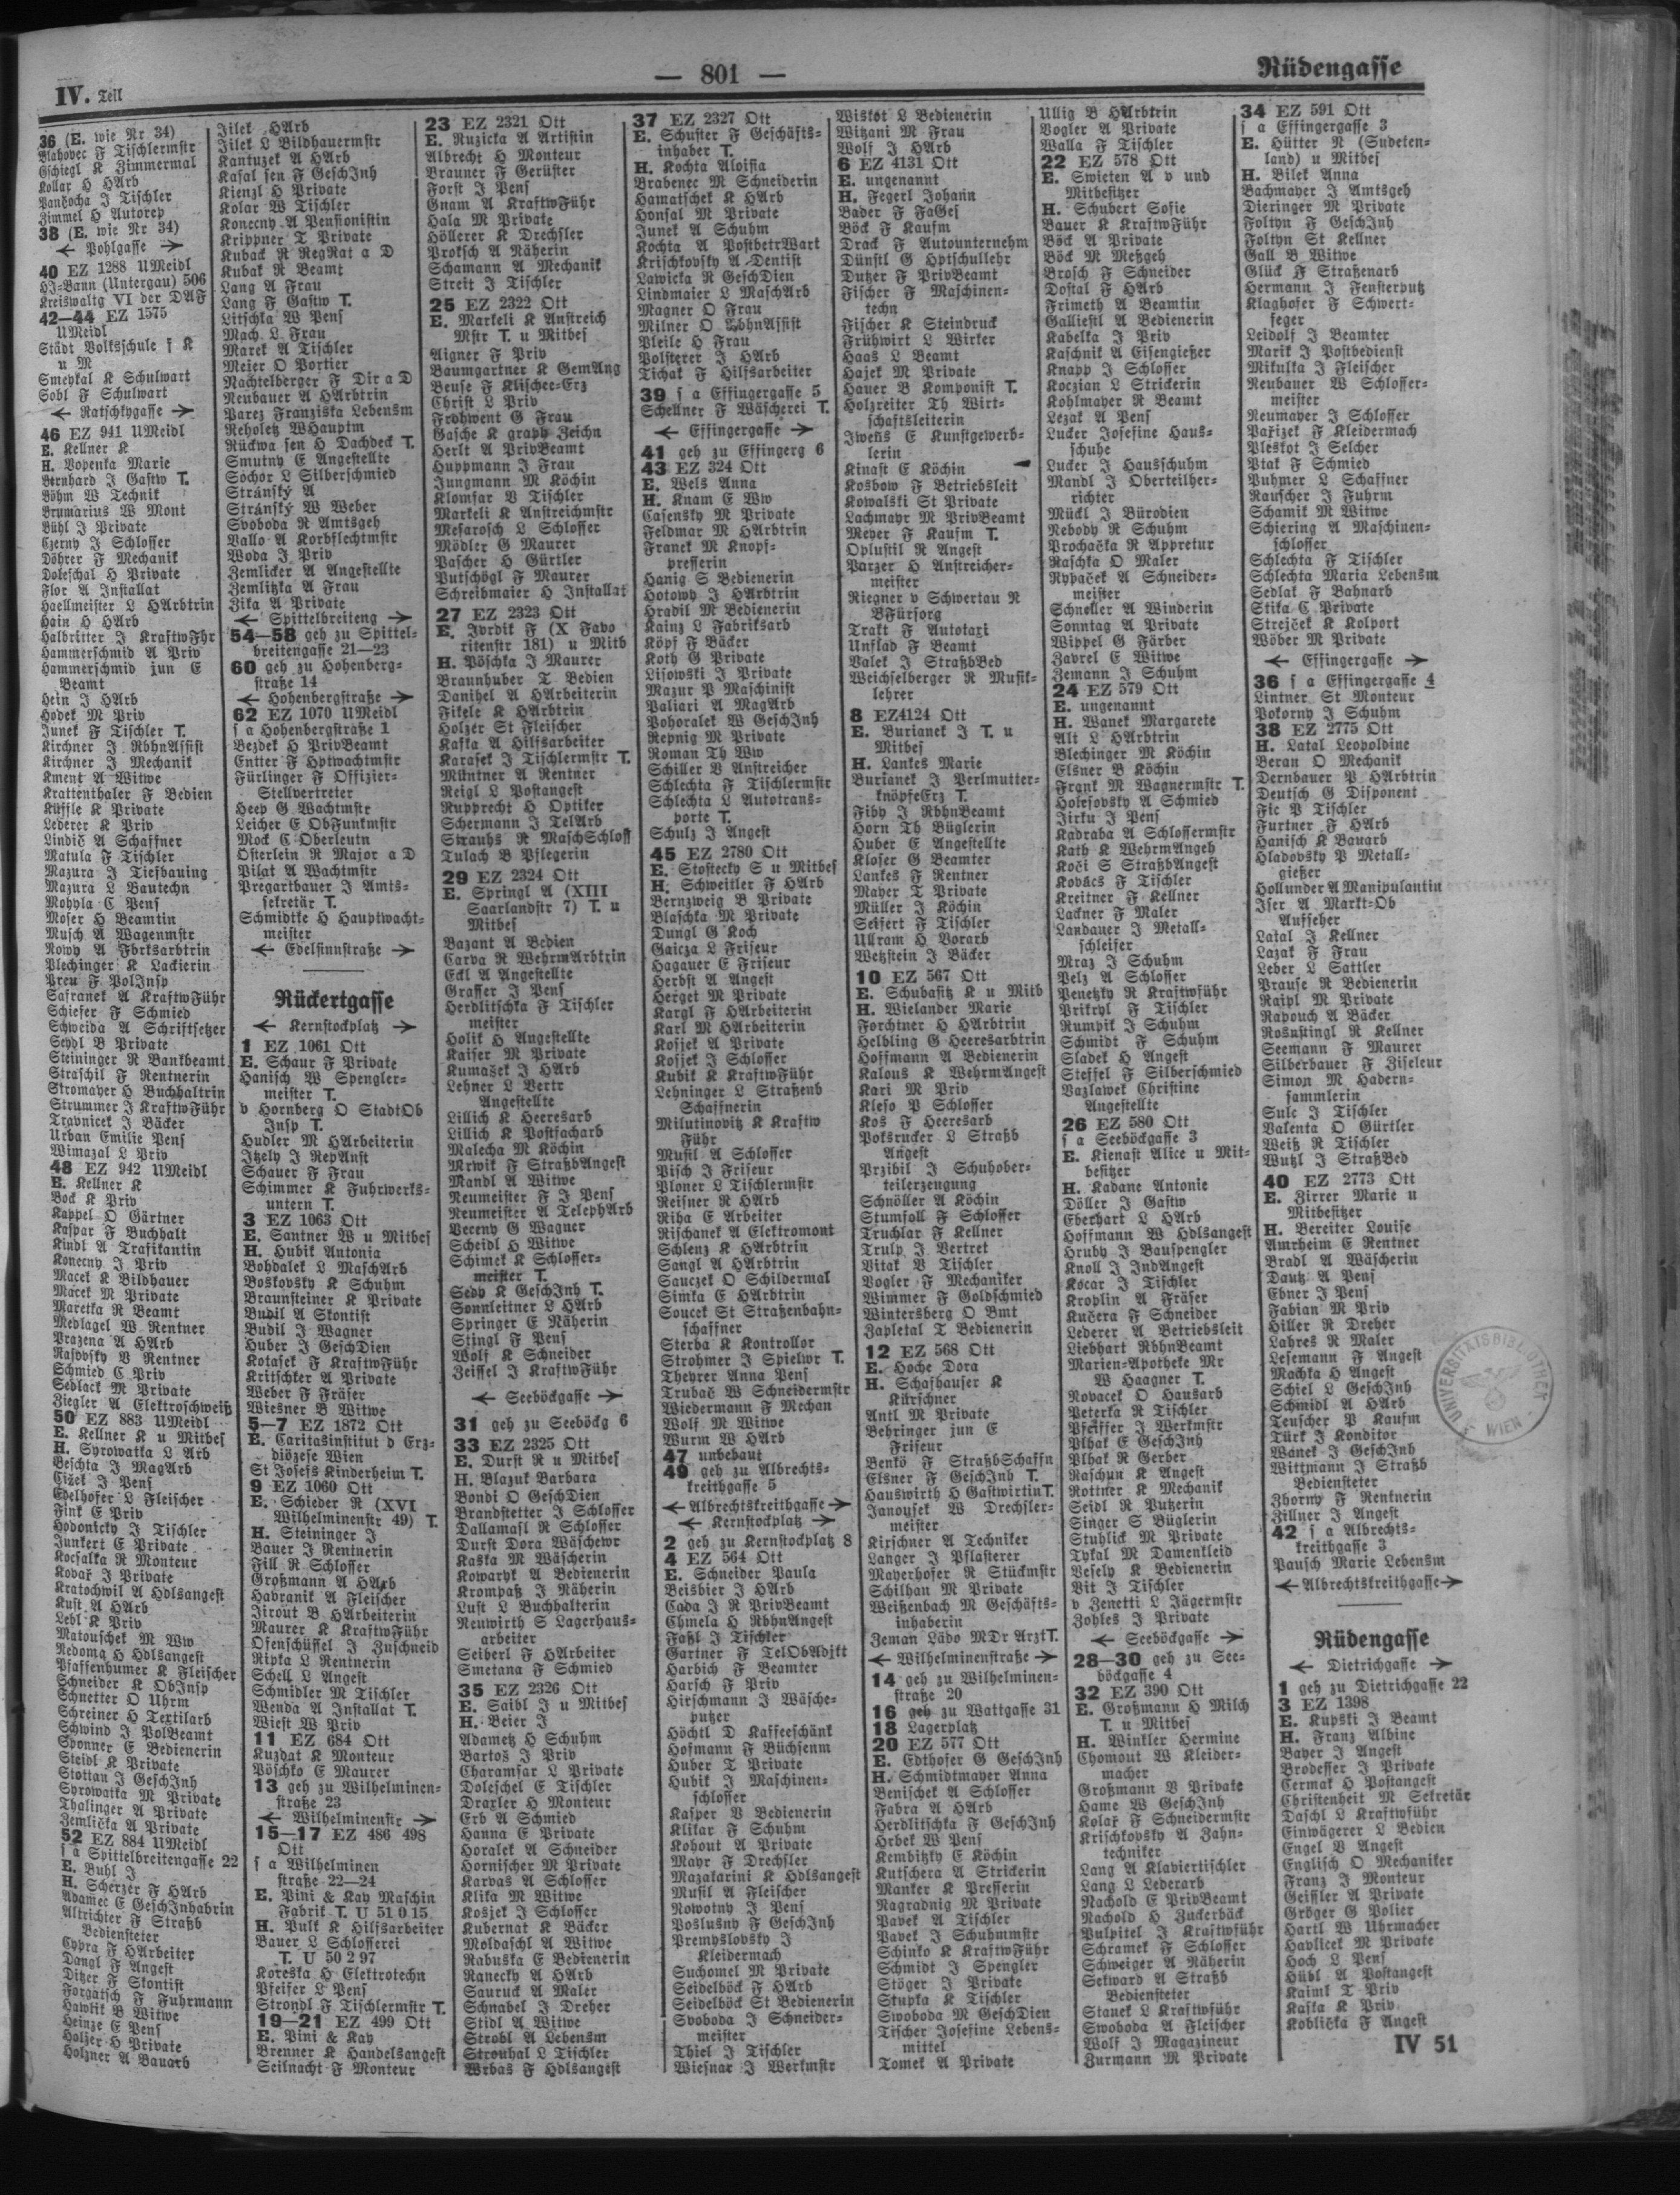 IV. Teil
— 801 —
Rüdengasse
36 (E. wie Nr 34)
Blahovec F Tischlermstr
Gschiegl K Zimmermal
Kollar H HArb
Pančocha J Tischler
Zimmel H Autorep
38 (E. wie Nr 34)
← Pohlgasse →
40 EZ 1288 UMeidl
HJ=Bann (Untergau) 506
Kreiswaltg VI der DAF
42—44 EZ 1575
UMeidl
Städt Volksschule f K
u M
Smeykal K Schulwart
Sobl F Schulwart
← Ratschkygasse →
46 EZ 941 UMeidl
E. Kellner K
H. Vopenka Marie
Bernhard J Gastw T.
Böhm W Technik
Brumarius W Mont
Bühl J Private
Czerny J Schlosser
Döhrer F Mechanik
Doleschal H Private
Flor A Installat
Haellmeister L HArbtrin
Hain H HArb
Halbritter J KraftwFhr
Hammerschmid A Priv
Hammerschmid jun E
Beamt
Hein J HArb
Hodek M Priv
Junek F Tischler T.
Kirchner J RbhnAssist
Kirchner J Mechanik
Kment A Witwe
Krattenthaler F Bedien
Küffle K Private
Lederer K Priv
Lindič A Schaffner
Matula F Tischler
Mazura J Tiefbauing
Mazura L Bautechn
Mohyla C Pens
Moser H Beamtin
Musch A Wagenmstr
Nowy A Fbrksarbtrin
Plechinger K Lackierin
Preu F PolInsp
Safranek A KraftwFühr
Schiefer F Schmied
Schweida A Schriftsetzer
Seydl B Private
Steininger R Bankbeamt
Straschil F Rentnerin
Stromayer H Buchhaltrin
Strummer J KraftwFühr
Travnicek J Bäcker
Urban Emilie Pens
Wimazal L Priv
48 EZ 942 UMeidl
E. Kellner K
Bock K Priv
Kappel O Gärtner
Kaspar F Buchhalt
Kindl A Trafikantin
Konecny J Priv
Macek K Bildhauer
Macek M Private
Maretka R Beamt
Medlagel W Rentner
Prazena A HArb
Rasovsky V Rentner
Schmied C Priv
Sedlacek M Private
Ziegler A Elektroschweiß
50 EZ 883 UMeidl
E. Kellner K u Mitbes
H. Syrowatka L Arb
Beschta J MagArb
Čižek J Pens
Edelhofer L Fleischer
Fink E Priv
Hodonicky J Tischler
Junkert E Private
Kocsalka R Monteur
Kovař J Private
Kratochwil A Hdlsangest
Kust A HArb
Lebl K Priv
Matouschek M Ww
Nedoma H Hdlsangest
Pfaffenhumer K Fleischer
Schneider K ObInsp
Schnetter O Uhrm
Schreiner H Textilarb
Schwind J PolBeamt
Sponner E Bedienerin
Steidl K Private
Stottan J GeschInh
Syrowatka M Private
Thalinger A Private
Zemlička A Private
52 EZ 884 UMeidl
s a Spittelbreitengasse 22
E. Buhl J
H. Scherzer F HArb
Adamec E GeschInhabrin
Altrichter F Straßb
Bediensteter
Cypra F HArbeiter
Dangl F Angest
Ditzer F Skontist
Forgatsch F Fuhrmann
Hawlik B Witwe
Heinze E Pens
Holzer H Private
Holzner A Bauarb
Jilek HArb
Jilek L Bildhauermstr
Kantuzek A HArb
Kasal sen F GeschInh
Kienzl H Private
Kolar W Tischler
Konecny A Pensionistin
Krippner T Private
Kuback R RegRat a D
Kubak R Beamt
Lang A Frau
Lang F Gastw T.
Litschka W Pens
Mach L Frau
Marek A Tischler
Meier O Portier
Nachtelberger F Dir a D
Neubauer A HArbtrin
Parez Franziska Lebensm
Reholetz WHauptm
Rückwa sen H Dachdeck T.
Smutny E Angestellte
Sochor L Silberschmied
Stránský A
Stránský W Weber
Svoboda R Amtsgeh
Vallo A Korbflechtmstr
Woda J Priv
Zemlicker A Angestellte
Zemlitzka A Frau
Zika A Private
← Spittelbreiteng →
54—58 geh zu Spittel=
breitengasse 21—23
60 geh zu Hohenberg=
straße 14
← Hohenbergstraße →
62 EZ 1070 UMeidl
s a Hohenbergstraße 1
Bezdek H PrivBeamt
Entter F Hptwachtmstr
Fürlinger F Offizier=
Stellvertreter
Heep G Wachtmstr
Leicher E ObFunkmstr
Mock C Oberleutn
Österlein R Major a D
Pilat A Wachtmstr
Pregartbauer J Amts=
sekretär T.
Schmidtke H Hauptwacht=
meister
← Edelsinnstraße →
Rückertgasse
← Kernstockplatz →
1 EZ 1061 Ott
E. Schaur F Private
Hanisch W Spengler=
meister T.
v Hornberg O StadtOb
Insp T.
Hudler M HArbeiterin
Itzely J RepAnst
Schauer F Frau
Schimmer K Fuhrwerks=
untern T.
3 EZ 1063 Ott
E. Santner W u Mitbes
H. Hubik Antonia
Bohdalek L MaschArb
Boskovsky K Schuhm
Braunsteiner K Private
Budil A Skontist
Budil J Wagner
Huber J GeschDien
Kotasek F KraftwFühr
Kritschker A Private
Weber F Fräser
Wiesner B Witwe
5—7 EZ 1872 Ott
E. Caritasinstitut d Erz=
diözese Wien
St Josefs Kinderheim T.
9 EZ 1060 Ott
E. Schieder R (XVI
Wilhelminenstr 49) T.
H. Steininger J
Bauer J Rentnerin
Fill R Schlosser
Großmann A HArb
Habranik A Fleischer
Jirout B HArbeiterin
Maurer K KraftwFühr
Ofenschüssel J Zuschneid
Ripka L Rentnerin
Schell L Angest
Schmidler M Tischler
Wenda A Installat T.
Wiest W Priv
11 EZ 684 Ott
Kuzdat K Monteur
Pöschko E Maurer
13 geh zu Wilhelminen=
straße 23
← Wilhelminenstr →
15—17 EZ 486 498
Ott
s a Wilhelminen
straße 22—24
E. Pini & Kay Maschin
Fabrik T. U 51 0 15
H. Pulk K Hilfsarbeiter
Bauer L Schlosserei
T. U 50 2 97
Koreska H Elektrotechn
Pfeifer L Pens
Strondl F Tischlermstr T.
19—21 EZ 499 Ott
E. Pini & Kay
Brenner K Handelsangest
Seilnacht F Monteur
23 EZ 2321 Ott
E. Ruzicka A Artistin
Albrecht H Monteur
Brauner F Gerüster
Forst J Pens
Gnam A KraftwFühr
Hala M Private
Höllerer K Drechsler
Proksch A Näherin
Schamann A Mechanik
Streit J Tischler
25 EZ 2322 Ott
E. Markeli K Anstreich
Mstr T. u Mitbes
Aigner F Priv
Baumgartner K GemAng
Beuse F Klischee=Erz
Christ L Priv
Frohwent G Frau
Gasche K graph Zeichn
Herlt A PrivBeamt
Huppmann J Frau
Jungmann M Köchin
Klomfar V Tischler
Markeli K Anstreichmstr
Mesarosch L Schlosser
Mödler G Maurer
Pascher H Gürtler
Putschögl F Maurer
Schreibmaier H Installat
27 EZ 2323 Ott
E. Jordik F (X Favo
ritenstr 181) u Mitb
H. Pöschka J Maurer
Braunhuber T Bedien
Danihel A HArbeiterin
Fikele K HArbtrin
Holzer St Fleischer
Kafka A Hilfsarbeiter
Karasek J Tischlermstr T.
Müntner A Rentner
Reigl L Postangest
Rupprecht H Optiker
Schermann J TelArb
Strauhs R MaschSchloss
Tulach B Pflegerin
29 EZ 2324 Ott
E. Springl A (XIII
Saarlandstr 7) T. u
Mitbes
Bazant A Bedien
Carda R WehrmArbtrin
Eckl A Angestellte
Grasser J Pens
Herdlitschka F Tischler
meister
Holik H Angestellte
Kaiser M Private
Kumaßek J HArb
Lehner L Vertr
Angestellte
Lillich K Heeresarb
Lillich K Postfacharb
Malecha M Köchin
Mrwik F StraßbAngest
Mandl A Witwe
Neumeister F J Pens
Neumeister A TelephArb
Peceny G Wagner
Scheidl H Witwe
Schimek K Schlosser=
meister T.
Sedy K GeschInh T.
Sonnleitner L HArb
Springer E Näherin
Stingl F Pens
Wolf K Schneider
Zeissel J KraftwFühr
← Seeböckgasse →
31 geh zu Seeböckg 6
33 EZ 2325 Ott
E. Durst R u Mitbes
H. Blazuk Barbara
Bondi O GeschDien
Brandstetter J Schlosser
Dallamasl R Schlosser
Durst Dora Wäschewr
Kaska M Wäscherin
Kowaryk A Bedienerin
Krompaß J Näherin
Lust L Buchhalterin
Neuwirth S Lagerhaus=
arbeiter
Seiberl F HArbeiter
Smetana F Schmied
35 EZ 2326 Ott
E. Saibl J u Mitbes
H. Beier J
Adametz H Schuhm
Bartoš J Priv
Charamsar L Private
Doleschel E Tischler
Draxler H Monteur
Erb A Schmied
Hanna E Private
Horalek A Schneider
Hornischer M Private
Karbas A Schlosser
Klika M Witwe
Kosjek J Schlosser
Kubernat K Bäcker
Moldaschl A Witwe
Rabuska E Bedienerin
Ranecky A HArb
Sauruck A Maler
Schnabel J Dreher
Stidl A Witwe
Strobl A Lebensm
Strouhal L Tischler
Wrbas F Hdlsangest
37 EZ 2327 Ott
E. Schuster F Geschäfts=
inhaber T.
H. Kochta Aloisia
Brabenec M Schneiderin
Hamatschek K HArb
Honsal M Private
Junek A Schuhm
Kochta A PostbetrWart
Krischkovsky A Dentist
Lawicka R GeschDien
Lindmaier L MaschArb
Magner O Frau
Milner O LohnAssist
Pleile H Frau
Polsterer J HArb
Tichak F Hilfsarbeiter
39 s a Effingergasse 5
Schellner F Wäscherei T.
← Effingergasse →
41 geh zu Effingerg 6
43 EZ 324 Ott
E. Wels Anna
H. Knam E Ww
Casensky M Private
Feldmar M HArbtrin
Franek M Knopf=
presserin
Hanig S Bedienerin
Hotowy J HArbtrin
Hradil M Bedienerin
Kainz L Fabriksarb
Köpf F Bäcker
Koth G Private
Lisowski J Private
Mazur P Maschinist
Paliari A MagArb
Pohoralek W GeschInh
Repnig M Private
Roman Th Ww
Schiller V Anstreicher
Schlechta F Tischlermstr
Schlechta L Autotrans=
porte T.
Schulz J Angest
45 EZ 2780 Ott
E. Stostecky S u Mitbes
H. Schweitler F HArb
Bernzweig B Private
Blaschka M Private
Dungl G Koch
Gaicza L Friseur
Hagauer E Friseur
Herbst A Angest
Herget M Private
Kargl F HArbeiterin
Karl M HArbeiterin
Kosjek A Private
Kosjek J Schlosser
Kubik K KraftwFühr
Lehninger L Straßenb
Schaffnerin
Milutinovitz K Kraftw
Führ
Musil A Schlosser
Pisch J Friseur
Ploner L Tischlermstr
Reisner R HArb
Riha E Arbeiter
Rischanek A Elektromont
Schlenz K HArbtrin
Sangl A HArbtrin
Sauczek O Schildermal
Simka E HArbtrin
Soucek St Straßenbahn=
schaffner
Sterba K Kontrollor
Strohmer J Spielwr T.
Theyrer Anna Pens
Trubač W Schneidermstr
Wiedermann F Mechan
Wolf M Witwe
Wurm W HArb
47 unbebaut
49 geh zu Albrechts=
kreithgasse 5
← Albrechtskreithgasse →
← Kernstockplatz →
2 geh zu Kernstockplatz 8
4 EZ 564 Ott
E. Schneider Paula
Beisbier J HArb
Cada J R PrivBeamt
Chmela H RbhnAngest
Faßl J Tischler
Gartner F TelObAdjkt
Harbich F Beamter
Harsch F Priv
Hirschmann J Wäsche=
putzer
Höchtl D Kaffeeschänk
Hofmann F Büchsenm
Huber T Private
Hubik J Maschinen=
schlosser
Kasper V Bedienerin
Klikar F Schuhm
Kohout A Private
Mayr F Drechsler
Mazakarini K Hdlsangest
Musil A Fleischer
Nowotny J Pens
Poslusny F GeschInh
Premyslovsky J
Kleidermach
Suchomel M Private
Seidelböck F HArb
Seidelböck St Bedienerin
Svoboda J Schneider=
meister
Thiel J Tischler
Wiesnar J Werkmstr
Wiskot L Bedienerin
Witzani M Frau
Wolf J HArb
6 EZ 4131 Ott
E. ungenannt
H. Fegerl Johann
Bader F FaGes
Böck F Kaufm
Drack F Autounternehm
Dünstl G Hptschullehr
Dutzer F PrivBeamt
Fischer F Maschinen=
techn
Fischer K Steindruck
Frühwirt L Wirker
Haas L Beamt
Hajek M Private
Hauer B Komponist T.
Holzreiter Th Wirt=
schaftsleiterin
Iwens E Kunstgewerb=
lerin
Kinast E Köchin
Kosbow F Betriebsleit
Kowalski St Private
Lachmayr M PrivBeamt
Meyer F Kaufm T.
Oplustil R Angest
Parzer H Anstreicher=
meister
Riegner v Schwertau R
BFürsorg
Trakt F Autotaxi
Unflad F Beamt
Valek J StraßbBed
Weichselberger R Musik=
lehrer
8 EZ4124 Ott
E. Burianek J T. u
Mitbes
H. Lankes Marie
Burianek J Perlmutter=
knöpfeErz T.
Fiby J RbhnBeamt
Horn Th Büglerin
Huber E Angestellte
Kloser G Beamter
Lankes F Rentner
Mayer T Private
Müller J Köchin
Seifert F Tischler
Ullram H Vorarb
Wetzstein J Bäcker
10 EZ 567 Ott
E. Schubasitz K u Mitb
H. Wielander Marie
Forchtner H HArbtrin
Helbling G Heeresarbtrin
Hoffmann A Bedienerin
Kalous K WehrmAngest
Kari M Priv
Kleso P Schlosser
Kos F Heeresarb
Poksrucker L Straßb
Angest
Przibil J Schuhober=
teilerzeugung
Schnöller A Köchin
Stumfoll F Schlosser
Truchlar F Kellner
Trulp J Vertret
Vitak V Tischler
Vogler F Mechaniker
Wimmer F Goldschmied
Wintersberg O Bmt
Zapletal T Bedienerin
12 EZ 568 Ott
E. Hoche Dora
H. Schafhauser K
Kürschner
Antl M Private
Behringer jun E
Friseur
Benkö F StraßbSchaffn
Elsner F GeschInh T.
Hauswirth H GastwirtinT.
Janousek W Drechsler=
meister
Kirschner A Techniker
Langer J Pflasterer
Mayerhofer R Stückmstr
Schilhan M Private
Weißenbach M Geschäfts=
inhaberin
Zeman Lädo MDr ArztT.
← Wilhelminenstraße →
14 geh zu Wilhelminen=
straße 20
16 geh zu Wattgasse 31
18 Lagerplatz
20 EZ 577 Ott
E. Edthofer G GeschInh
H. Schmidtmayer Anna
Benischek A Schlosser
Fabra A HArb
Herdlitschka F GeschInh
Hrbek W Pens
Kembitzky E Köchin
Kutschera A Strickerin
Manker K Presserin
Nagradnig M Private
Pavek A Tischler
Pavek J Schuhmmstr
Schinko K KraftwFühr
Schmidt J Spengler
Stöger J Private
Stupka K Tischler
Swoboda M GeschDien
Tischer Josefine Lebens=
mittel
Tomek A Private
Ullig B HArbtrin
Vogler A Private
Walla F Tischler
22 EZ 578 Ott
E. Swieten A v und
Mitbesitzer
H. Schubert Sofie
Bauer K KraftwFühr
Böck A Private
Böck M Meßgeh
Brosch F Schneider
Dostal F HArb
Frimeth A Beamtin
Galliestl A Bedienerin
Kabelka J Priv
Kaschnik A Eisengießer
Knapp J Schlosser
Koczian L Strickerin
Kohlmayer R Beamt
Lezak A Pens
Lucker Josefine Haus=
schuhe
Lucker J Hausschuhm
Mandl J Oberteilher=
richter
Mückl J Bürodien
Nebody R Schuhm
Prochaćka R Appretur
Raschka O Maler
Rypaček A Schneider=
meister
Schneller A Winderin
Sonntag A Private
Wippel G Färber
Zavrel E Witwe
Zemann J Schuhm
24 EZ 579 Ott
E. ungenannt
H. Wanek Margarete
Alt L HArbtrin
Blechinger M Köchin
Elsner B Köchin
Frank M Wagnermstr T.
Holesovsky A Schmied
Jirku J Pens
Kadraba A Schlossermstr
Kath K WehrmAngeh
Koči S StraßbAngest
Kovács F Tischler
Kreitner F Kellner
Lackner F Maler
Landauer J Metall=
schleifer
Mraz J Schuhm
Pelz A Schlosser
Penetzky R Kraftwführ
Prikryl F Tischler
Rumpik J Schuhm
Schmidt F Schuhm
Sladek H Angest
Steffel F Silberschmied
Vazlawek Christine
Angestellte
26 EZ 580 Ott
s a Seeböckgasse 3
E. Kienast Alice u Mit=
besitzer
H. Kadane Antonie
Döller J Gastw
Eberhart L HArb
Hoffmann W Hdlsangest
Hruby J Bauspengler
Knoll J IndAngest
Kocar J Tischler
Kroplin A Fräser
Kučera F Schneider
Lederer A Betriebsleit
Liebhart RbhnBeamt
Marien=Apotheke Mr
W Haagner T.
Novacek O Hausarb
Peterka R Tischler
Pfeiffer J Werkmstr
Plhak E GeschInh
Plhak R Gerber
Raschun K Angest
Rottner K Mechanik
Seidl R Putzerin
Singer S Büglerin
Stuhlick M Private
Tykal M Damenkleid
Vesely K Bedienerin
Vit J Tischler
v Zenetti L Jägermstr
Zohles J Private
← Seeböckgasse →
28—30 geh zu See=
böckgasse 4
32 EZ 390 Ott
E. Großmann H Milch
T. u Mitbes
H. Winkler Hermine
Chomout W Kleider=
macher
Großmann V Private
Hame W GeschInh
Kolař F Schneidermstr
Krischkovsky A Zahn=
techniker
Lang A Klaviertischler
Lang L Lederarb
Nachold E PrivBeamt
Nachold H Zuckerbäck
Pulpitel J Kraftwführ
Schramek F Schlosser
Schweiger A Näherin
Sekward A Straßb
Bediensteter
Stanek L Kraftwführ
Swoboda A Fleischer
Wolf J Magazineur
Zurmann M Private
34 EZ 591 Ott
s a Effingergasse 3
E. Hütter N (Sudeten=
land) u Mitbes
H. Bilek Anna
Bachmayer J Amtsgeh
Dieringer M Private
Foltyn F GeschInh
Foltyn St Kellner
Gall B Witwe
Glück F Straßenarb
Hermann J Fensterputz
Klaghofer F Schwert=
feger
Leidolf J Beamter
Marik J Postbedienst
Mikulka J Fleischer
Neubauer W Schlosser=
meister
Neumayer J Schlosser
Pařizek F Kleidermach
Pleskot J Selcher
Ptak F Schmied
Puhmer L Schaffner
Rauscher J Fuhrm
Schamik M Witwe
Schiering A Maschinen=
schlosser
Schlechta F Tischler
Schlechta Maria Lebensm
Sedlak F Bahnarb
Stika C Private
Strejček K Kolport
Wöber M Private
← Effingergasse →
36 s a Effingergasse 4
Lintner St Monteur
Pokorny J Schuhm
38 EZ 2775 Ott
H. Latal Leopoldine
Beran O Mechanik
Dernbauer P HArbtrin
Deutsch G Disponent
Fic P Tischler
Furtner F HArb
Hanisch K Bauarb
Hladovsky P Metall=
gießer
Hollunder A Manipulantin
Iser A Markt=Ob
Aufseher
Latal J Kellner
Lazak F Frau
Leber L Sattler
Prause R Bedienerin
Raipl M Private
Rapouch A Bäcker
Rosustingl R Kellner
Seemann F Maurer
Silberbauer F Ziseleur
Simon M Hadern=
sammlerin
Sulc J Tischler
Valenta O Gürtler
Weiß R Tischler
Wutzl J StraßBed
40 EZ 2773 Ott
E. Zirrer Marie u
Mitbesitzer
H. Bereiter Louise
Amrheim E Rentner
Bradl A Wäscherin
Dautz A Pens
Ebner J Pens
Fabian M Priv
Hiller R Dreher
Lahres R Maler
Lesemann F Angest
Machka H Angest
Schiel L GeschInh
Schmidl A HArb
Teuscher P Kaufm
Türk J Konditor
Wanek J GeschInh
Wittmann J Straßb
Bediensteter
Zborny F Rentnerin
Zillner J Angest
42 s a Albrechts=
kreithgasse 3
Pausch Marie Lebensm
← Albrechtskreithgasse →
Rüdengasse
← Dietrichgasse →
1 geh zu Dietrichgasse 22
3 EZ 1398
E. Kupski J Beamt
H. Franz Albine
Bayer J Angest
Brodesser J Private
Cermak H Postangest
Christenheit M Sekretär
Daschl L Kraftwführ
Einwägerer L Bedien
Engel V Angest
Englisch O Mechaniker
Franz J Monteur
Geissler A Private
Gröger G Polier
Hartl W Uhrmacher
Havlicek M Private
Hoch L Pens
Hübl A Postangest
Kaiml T Priv
Kaska K Priv
Koblička F Angest
IV 51
UNIVERSITÄTSBIBLIOTHEK
WIEN